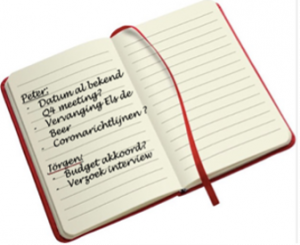 Peter:
· Datum al bekend
Q4 meeting?
· Vervanging Els de
Beer
· Coronarichtlijnen?
Jorgen:
· Budget akkoord?
· Verzoek interview